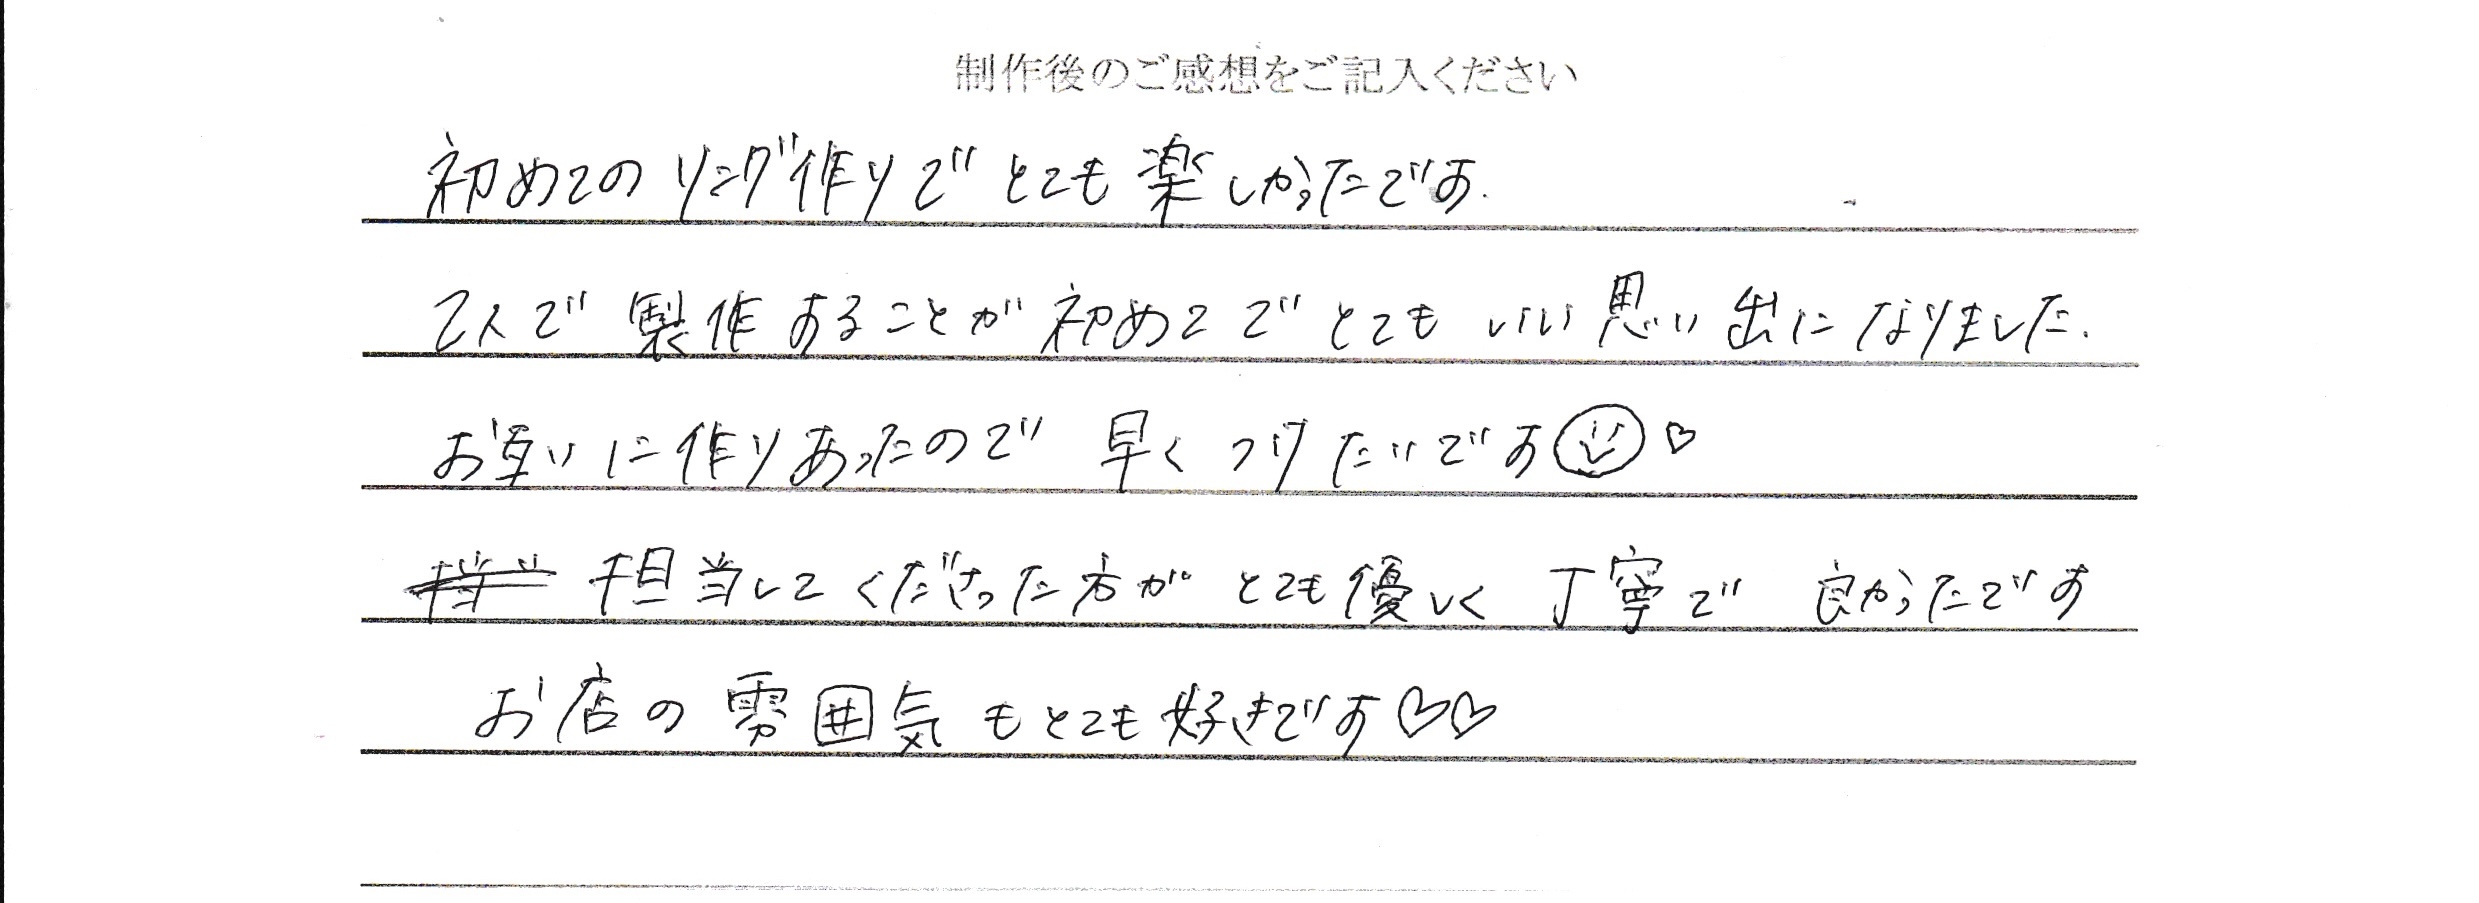 制作後のご感想をご記入ください
初めてのリング作りでとても楽しかったです.
2人で製作することが初めてでとてもいい思い出になりました.
お互いに作りあったので早くつけたいです☺♡
担当してくださった方がとても優しく丁寧で良かったです
お店の雰囲気もとても好きです♡♡